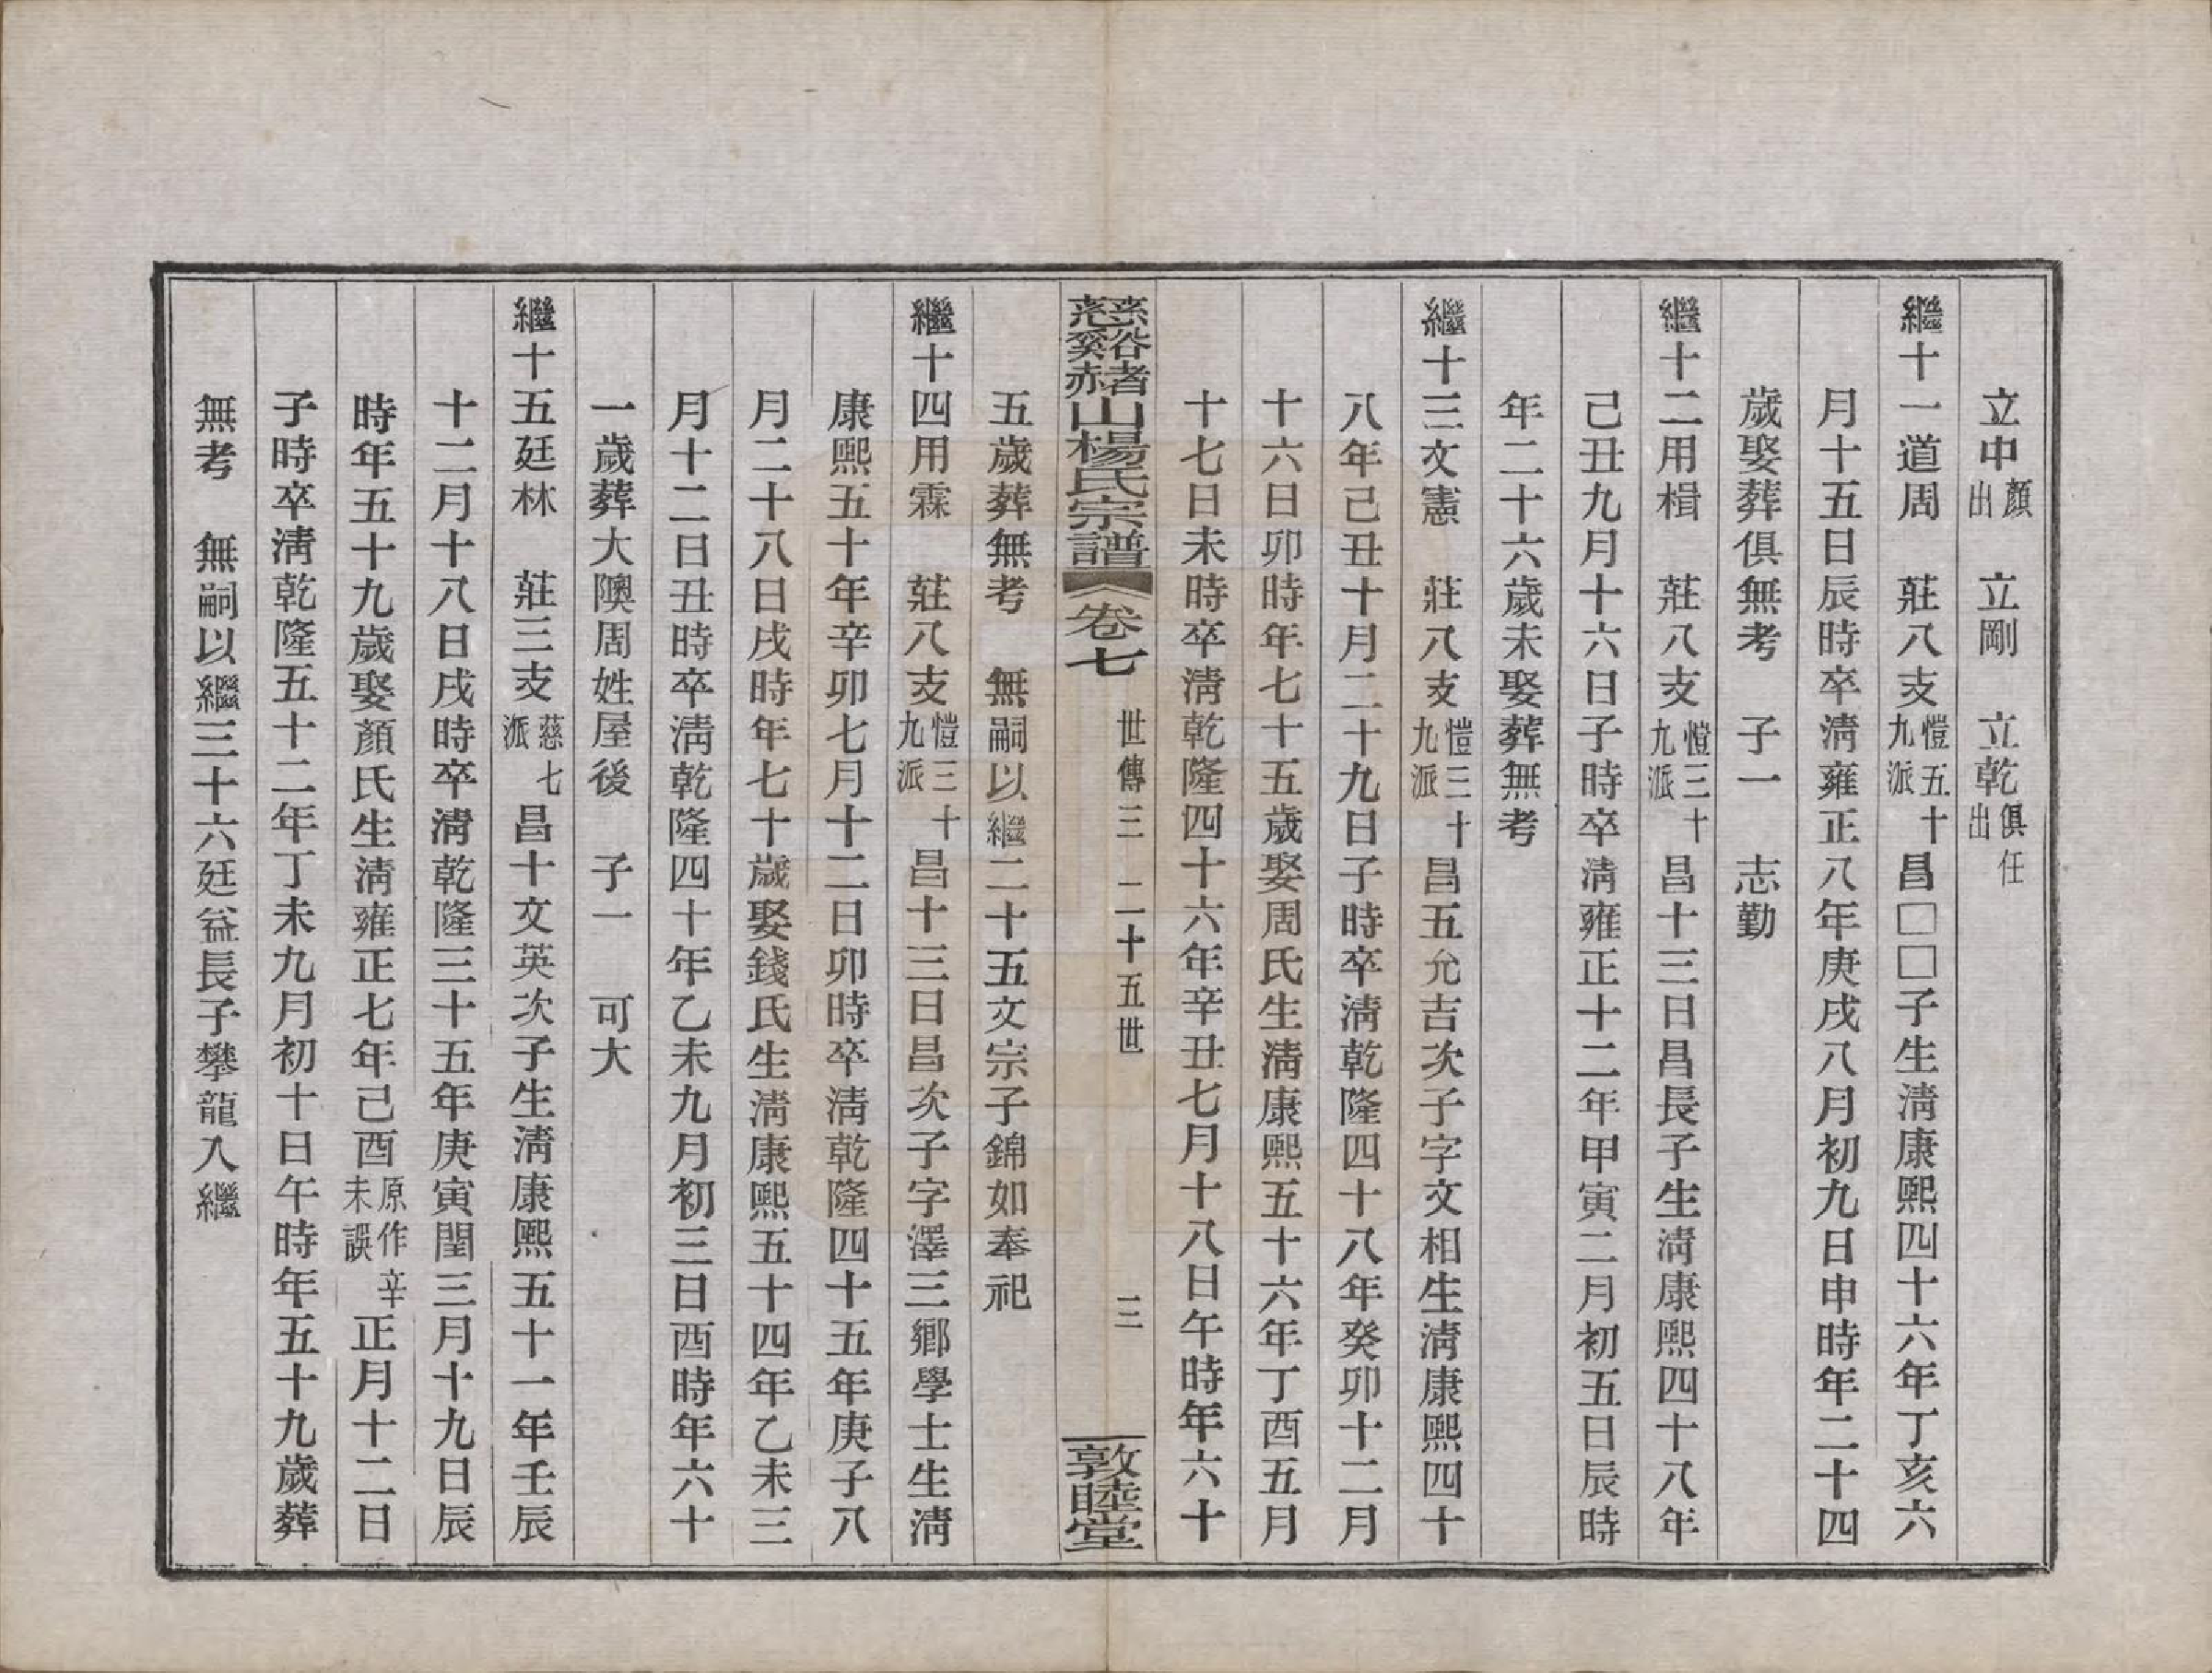 立中顏出　立剛　立乾俱任出
繼十一道周　莊八支愷五十九派昌□□子生清康熙四十六年丁亥六
月十五日辰時卒清雍正八年庚戌八月初九日申時年二十四
歲娶葬俱無考　子一　志勤
繼十二用楫　莊八支愷三十九派昌十三日昌長子生清康熙四十八年
己丑九月十六日子時卒清雍正十二年甲寅二月初五日辰時
年二十六歲未娶葬無考
繼十三文憲　莊八支愷三十九派昌五允吉次子字文相生清康熙四十
八年己丑十月二十九日子時卒清乾隆四十八年癸卯十二月
十六日卯時年七十五歲娶周氏生清康熙五十六年丁酉五月
十七日未時卒清乾隆四十六年辛丑七月十八日午時年六十
慈谿赭山楊氏宗譜　卷七　世傳三　二十五世　三　敦睦堂
五歲葬無考　無嗣以繼二十五文宗子錦如奉祀
繼十四用霖　莊八支愷三十九派昌十三日昌次子字澤三鄉學士生清
康熙五十年辛卯七月十二日卯時卒清乾隆四十五年庚子八
月二十八日戌時年七十歲娶錢氏生清康熙五十四年乙未三
月十二日丑時卒清乾隆四十年乙未九月初三日酉時年六十
一歲葬大隩周姓屋後　子一　可大
繼十五廷林　莊三支慈七派昌十文英次子生清康熙五十一年壬辰
十二月十八日戌時卒清乾隆三十五年庚寅閏三月十九日辰
時年五十九歲娶顏氏生清雍正七年己酉原作辛未誤正月十二日
子時卒清乾隆五十二年丁未九月初十日午時年五十九歲葬
無考　無嗣以繼三十六廷益長子攀龍入繼